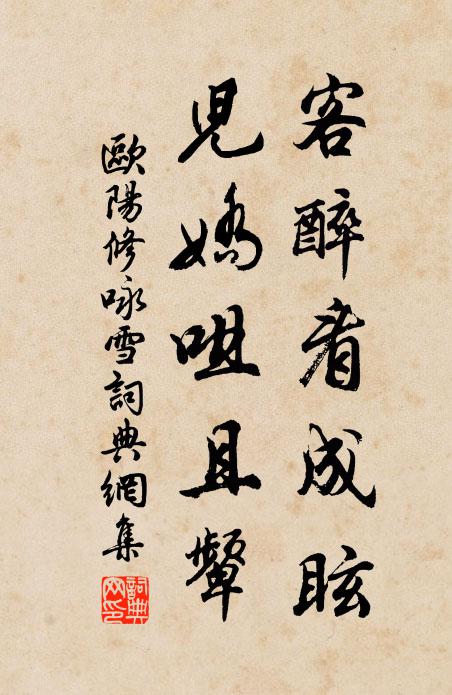 客醉看成眩
兒嬌咀且顰
歐陽修咏雪詞典網集
詞典網印